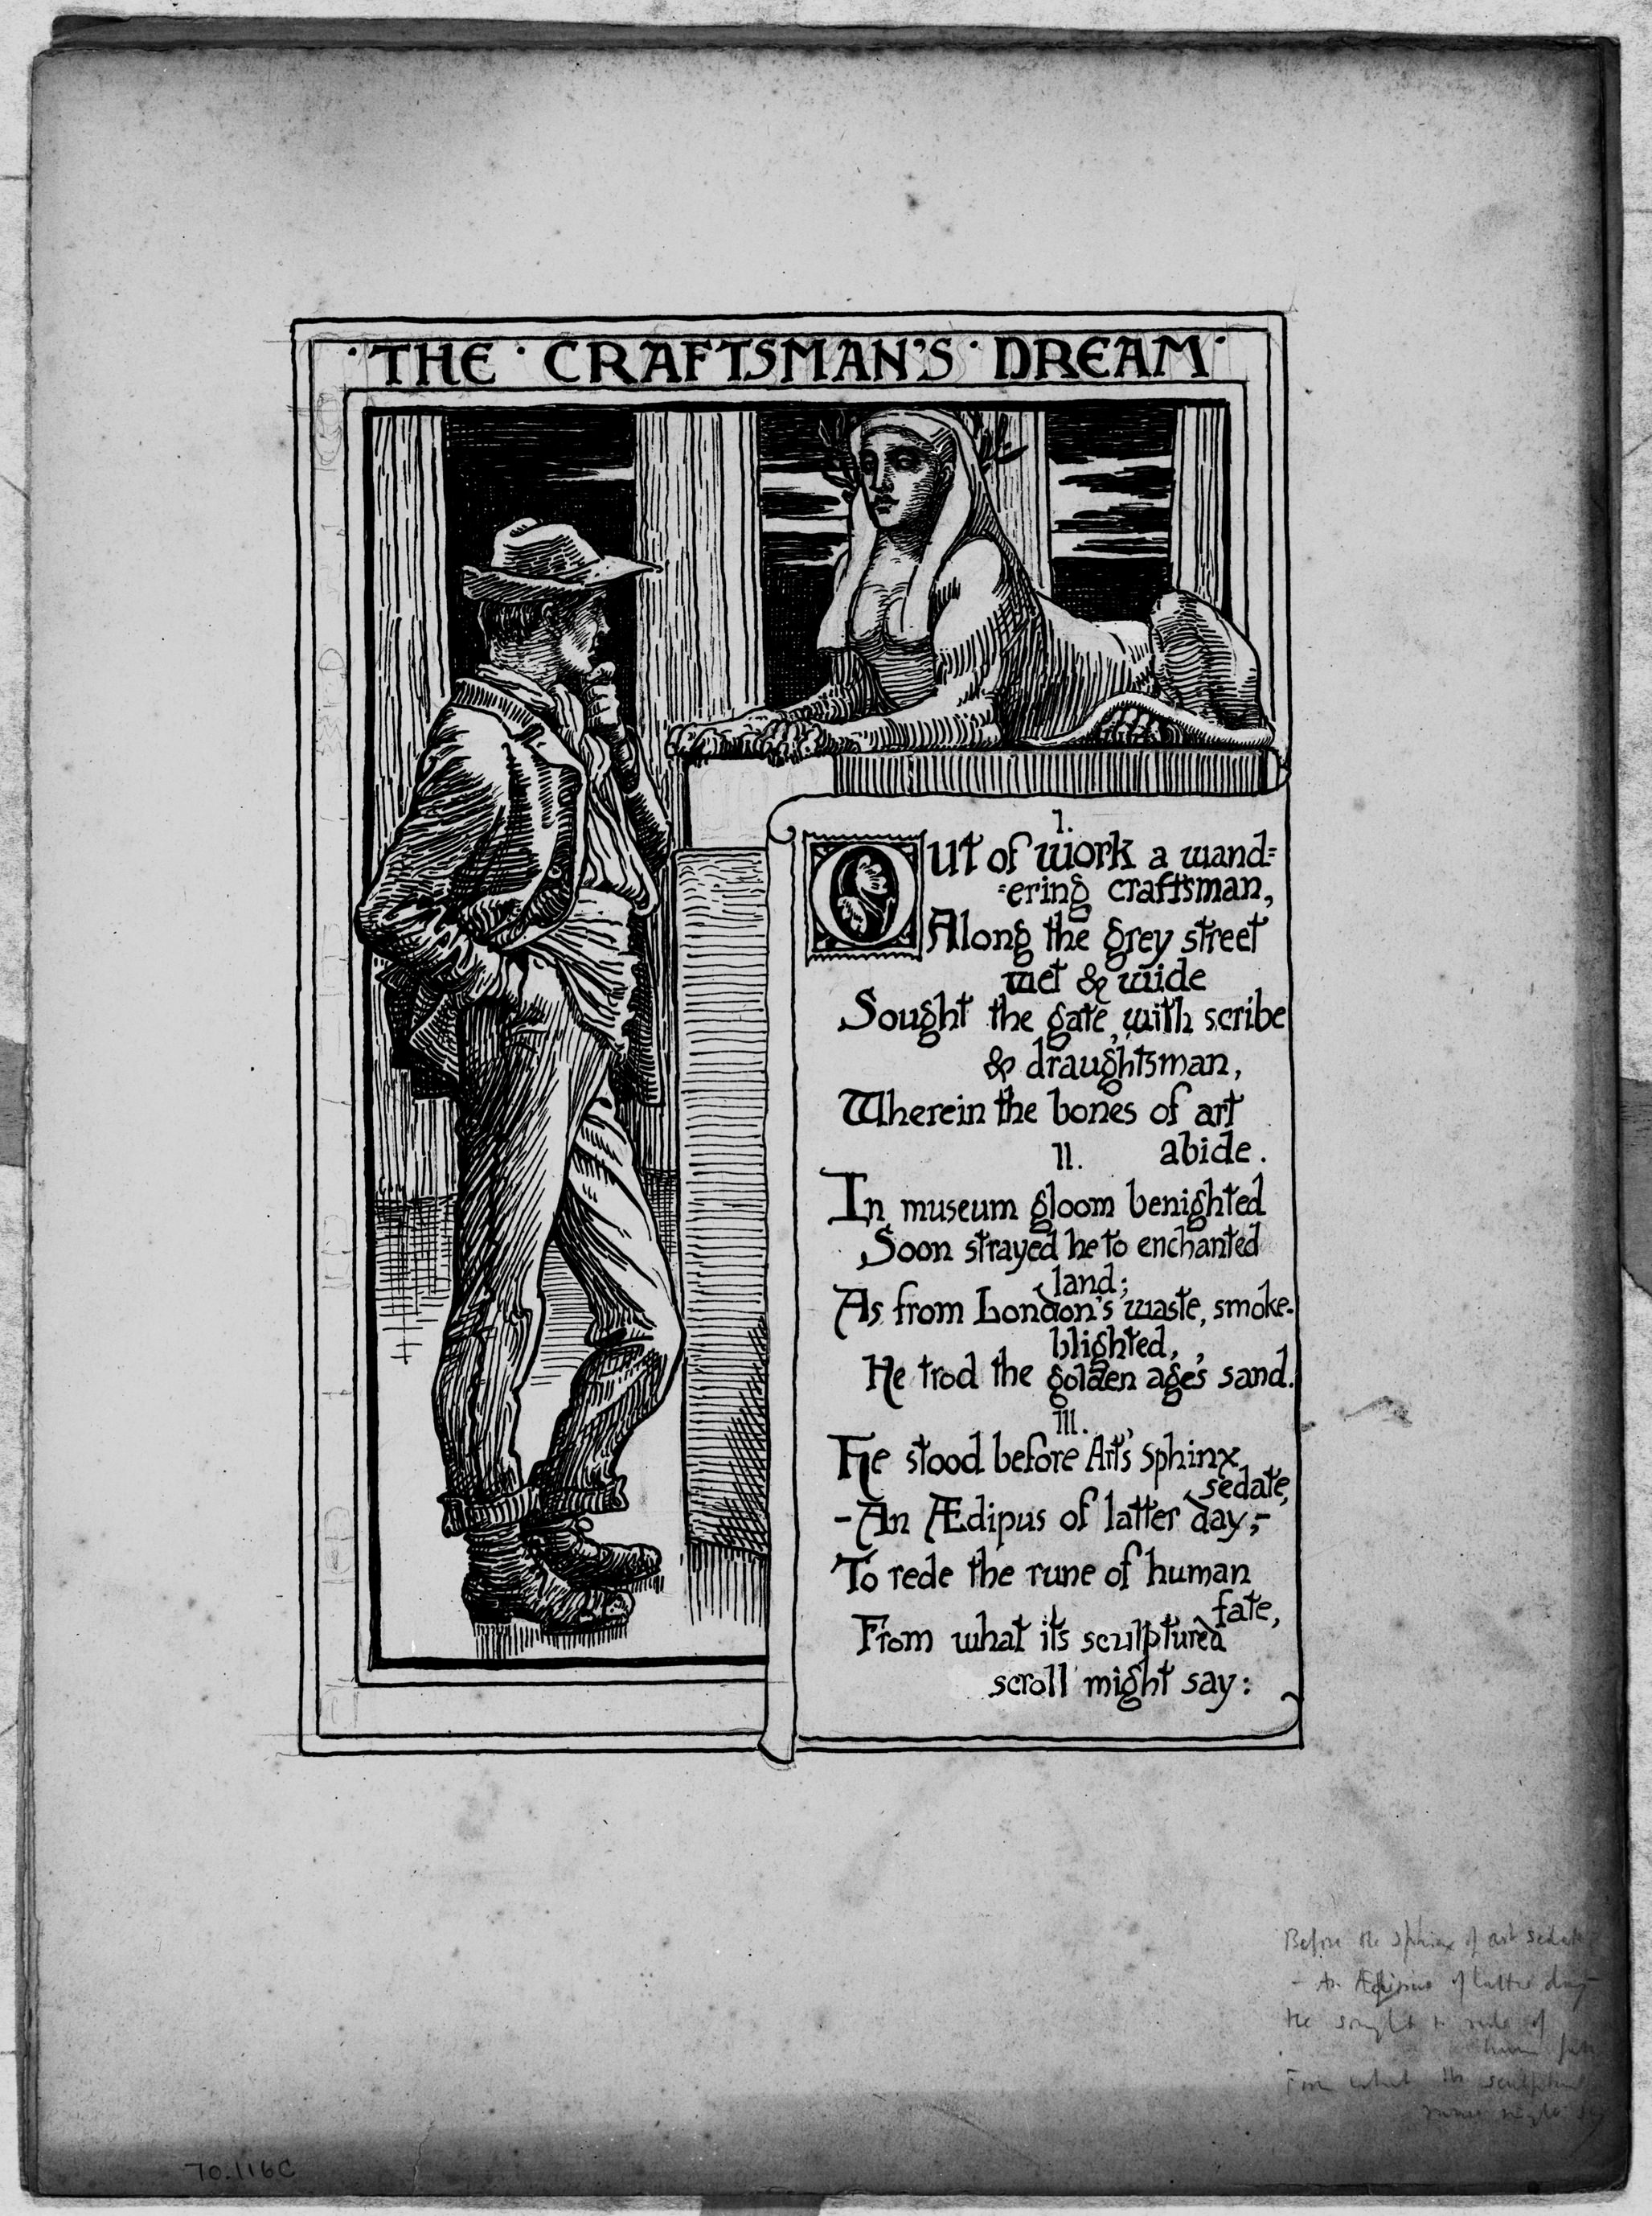 · THE · CRAFTSMAN'S · DREAM ·
I.
Out of work a wand=
=ering craftsman,
Along the grey street
wet & wide
Sought the gate, with scribe
& draughtsman,
Wherein the bones of art
abide.
II.
In museum gloom benighted
Soon strayed he to enchanted
land;
As from London's waste, smoke-
blighted,
He trod the golden age's sand.
III.
He stood before Art's sphinx
sedate,
-An Ædipus of latter day,-
To rede the rune of human
fate,
From what its sculptured
scroll might say:
Before the sphinx of art sedate
- An Ædipus of latter day -
He sought to rede of
human fate
From what the sculptured
might say
70.116C